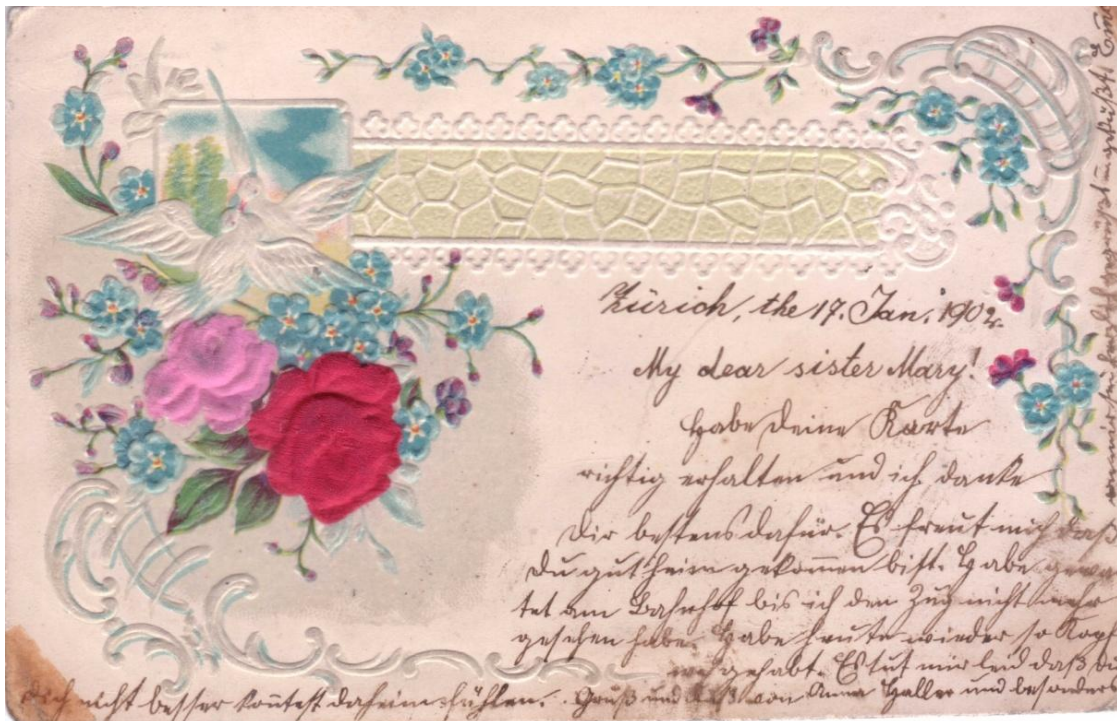 Zürich, the 17. Jan. 1902.
My dear sister Mary!
Habe deine Karte
richtig erhalten und ich danke
dir bestens dafür. Es freut mich daß
du gut heim gekommen bist. Habe gewar
tet am Bahnhof bis ich den Zug nicht mehr
gesehen habe. Habe heute wieder so Kopf
weh gehabt. Es tut mir leid daß du
dich nicht besser kontest daheim fühlen. Gruß und Kuß von Anna Haller und besonders
von mir sei herzlich gegrüßt u. geküßt